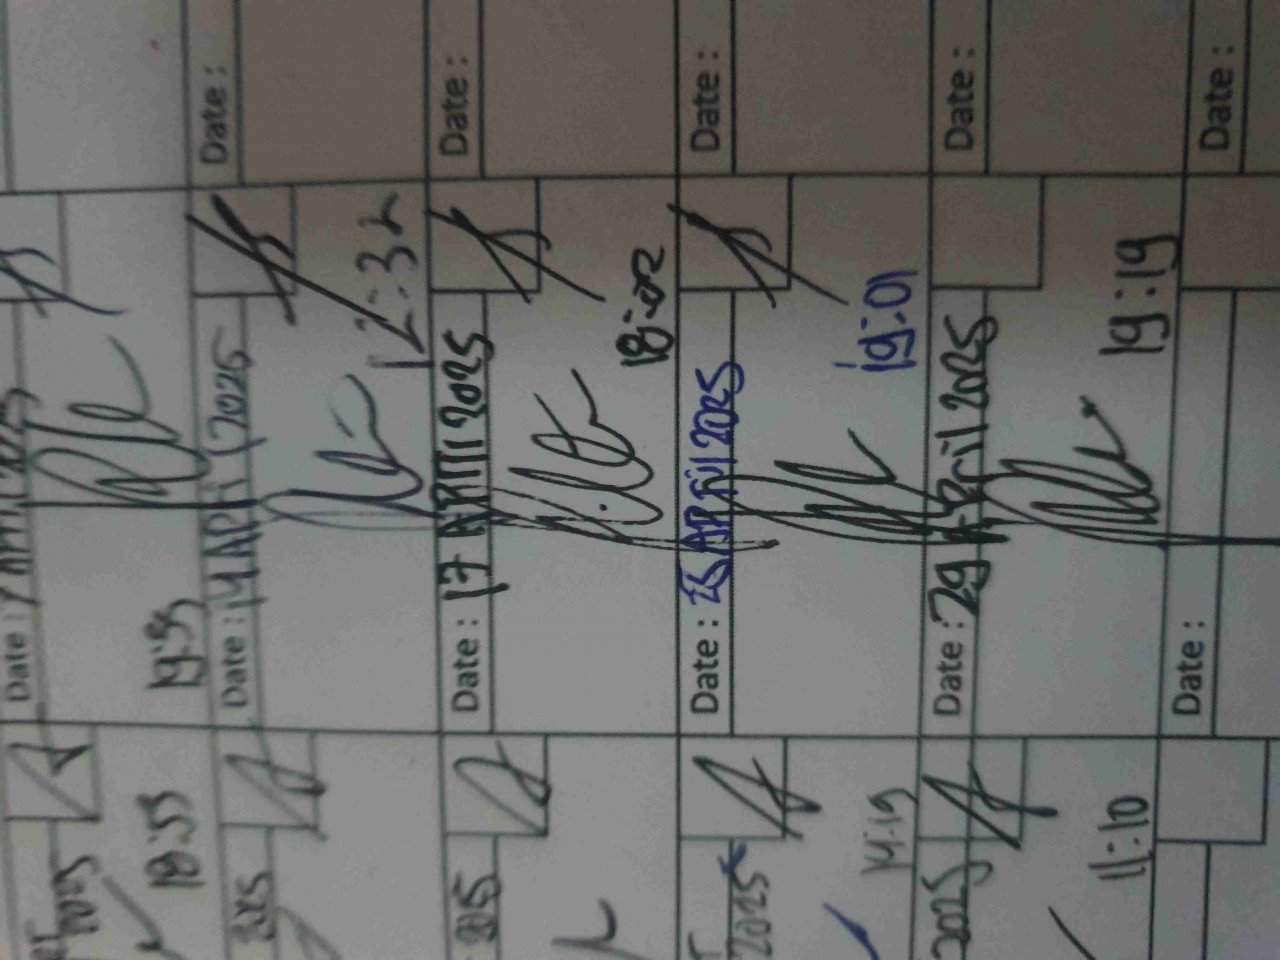 2025 Date : 7 April 2025
18:33 19:35
2025 Date : 14 April 2025 Date :
12:32
2025 Date : 17 April 2025 Date :
18:02
2025 Date : April 2025 Date :
14:19 19:01
2025 Date : 29 April 2025 Date :
11:10 19:19
Date : Date :